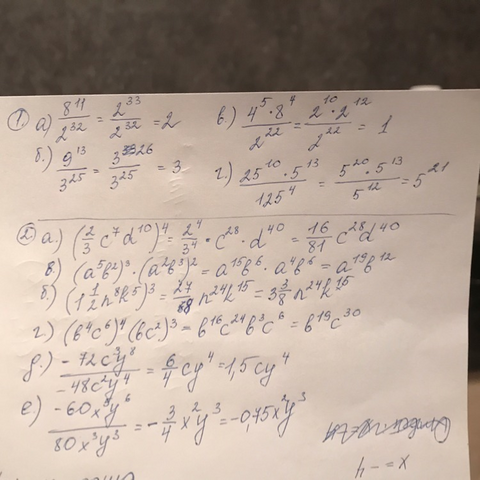 ① а) 8^11/2^32 = 2^33/2^32 = 2
в) 4^5·8^4/2^22 = 2^10·2^12/2^22 = 1
б) 9^13/3^25 = 3^26/3^25 = 3
г) 25^10·5^13/125^4 = 5^20·5^13/5^12 = 5^21
② а) (2/3 c^7 d^10)^4 = 2^4/3^4 · c^28 · d^40 = 16/81 c^28 d^40
в) (a^5 b^2)^3 · (a^2 b^3)^2 = a^15 b^6 · a^4 b^6 = a^19 b^12
б) (1 1/2 n^8 k^5)^3 = 27/8 n^24 k^15 = 3 3/8 n^24 k^15
г) (b^4 c^6)^4 (bc^2)^3 = b^16 c^24 b^3 c^6 = b^19 c^30
д) -72c^3y^8/-48c^2y^4 = 6/4 cy^4 = 1,5cy^4
е) -60x^5y^6/80x^3y^3 = -3/4 x^2y^3 = -0,75x^2y^3
x = -4